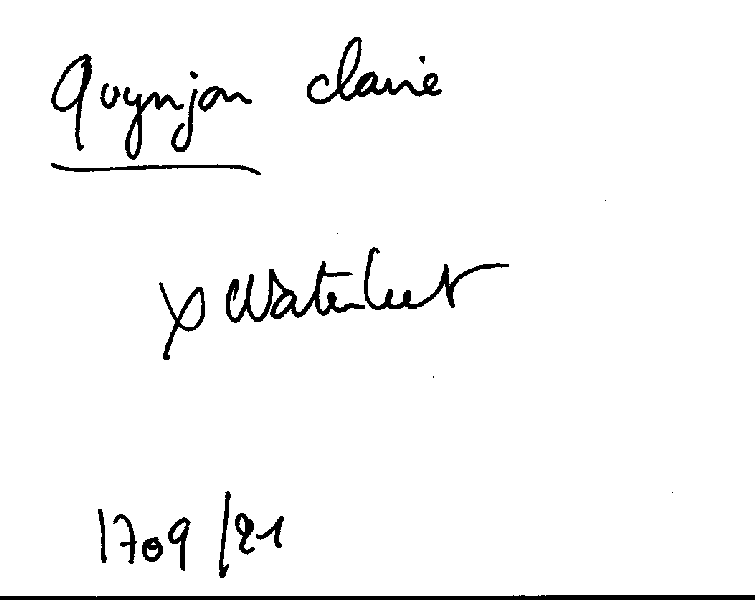 Quynjon claire
x Waterlect
1709/21